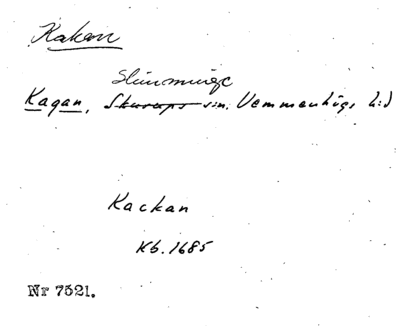 Kakan
Slimminge
Kagan, Skurups sn. Vemmenhögs hd
Kackan
Kb. 1685
Nr 7521.